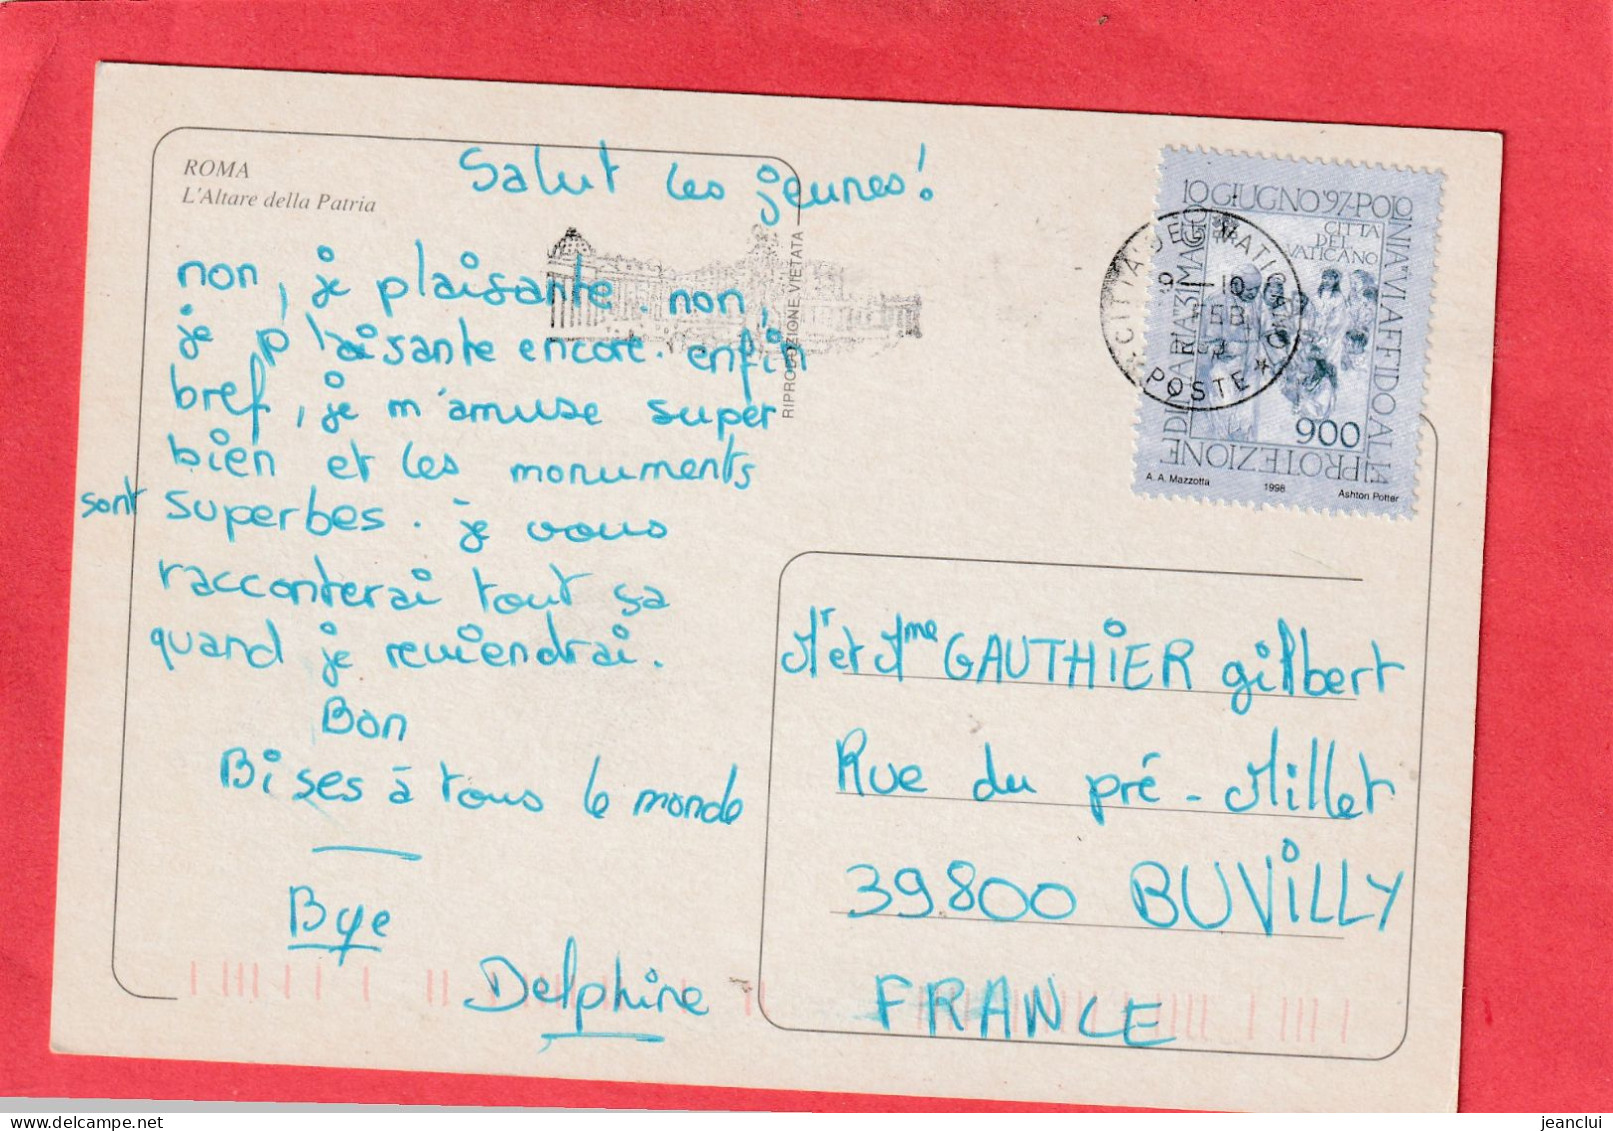 ROMA
L'Altare della Patria
Salut les jeunes!
non, je plaisante. non,
je plaisante encore. enfin
bref, je m'amuse super
bien et les monuments
sont superbes. je vous
racconterai tout sa
quand je reviendrai.
Bon
Bises à tous le monde
Bye
Delphine
RIPRODUZIONE VIETATA
10 GIUGNO '97-POLONIA "VI AFFIDO ALLA PROTEZIONE DI MARIA"
CITTÀ
DEL
VATICANO
900
A. A. Mazzotta 1998 Ashton Potter
CITTA' DEL VATICANO
9 - 10
FEB.
POSTE
Mr et Mme GAUTHiER gilbert
Rue du pré - Millet
39800 BUViLLY
FRANCE
jeanclui